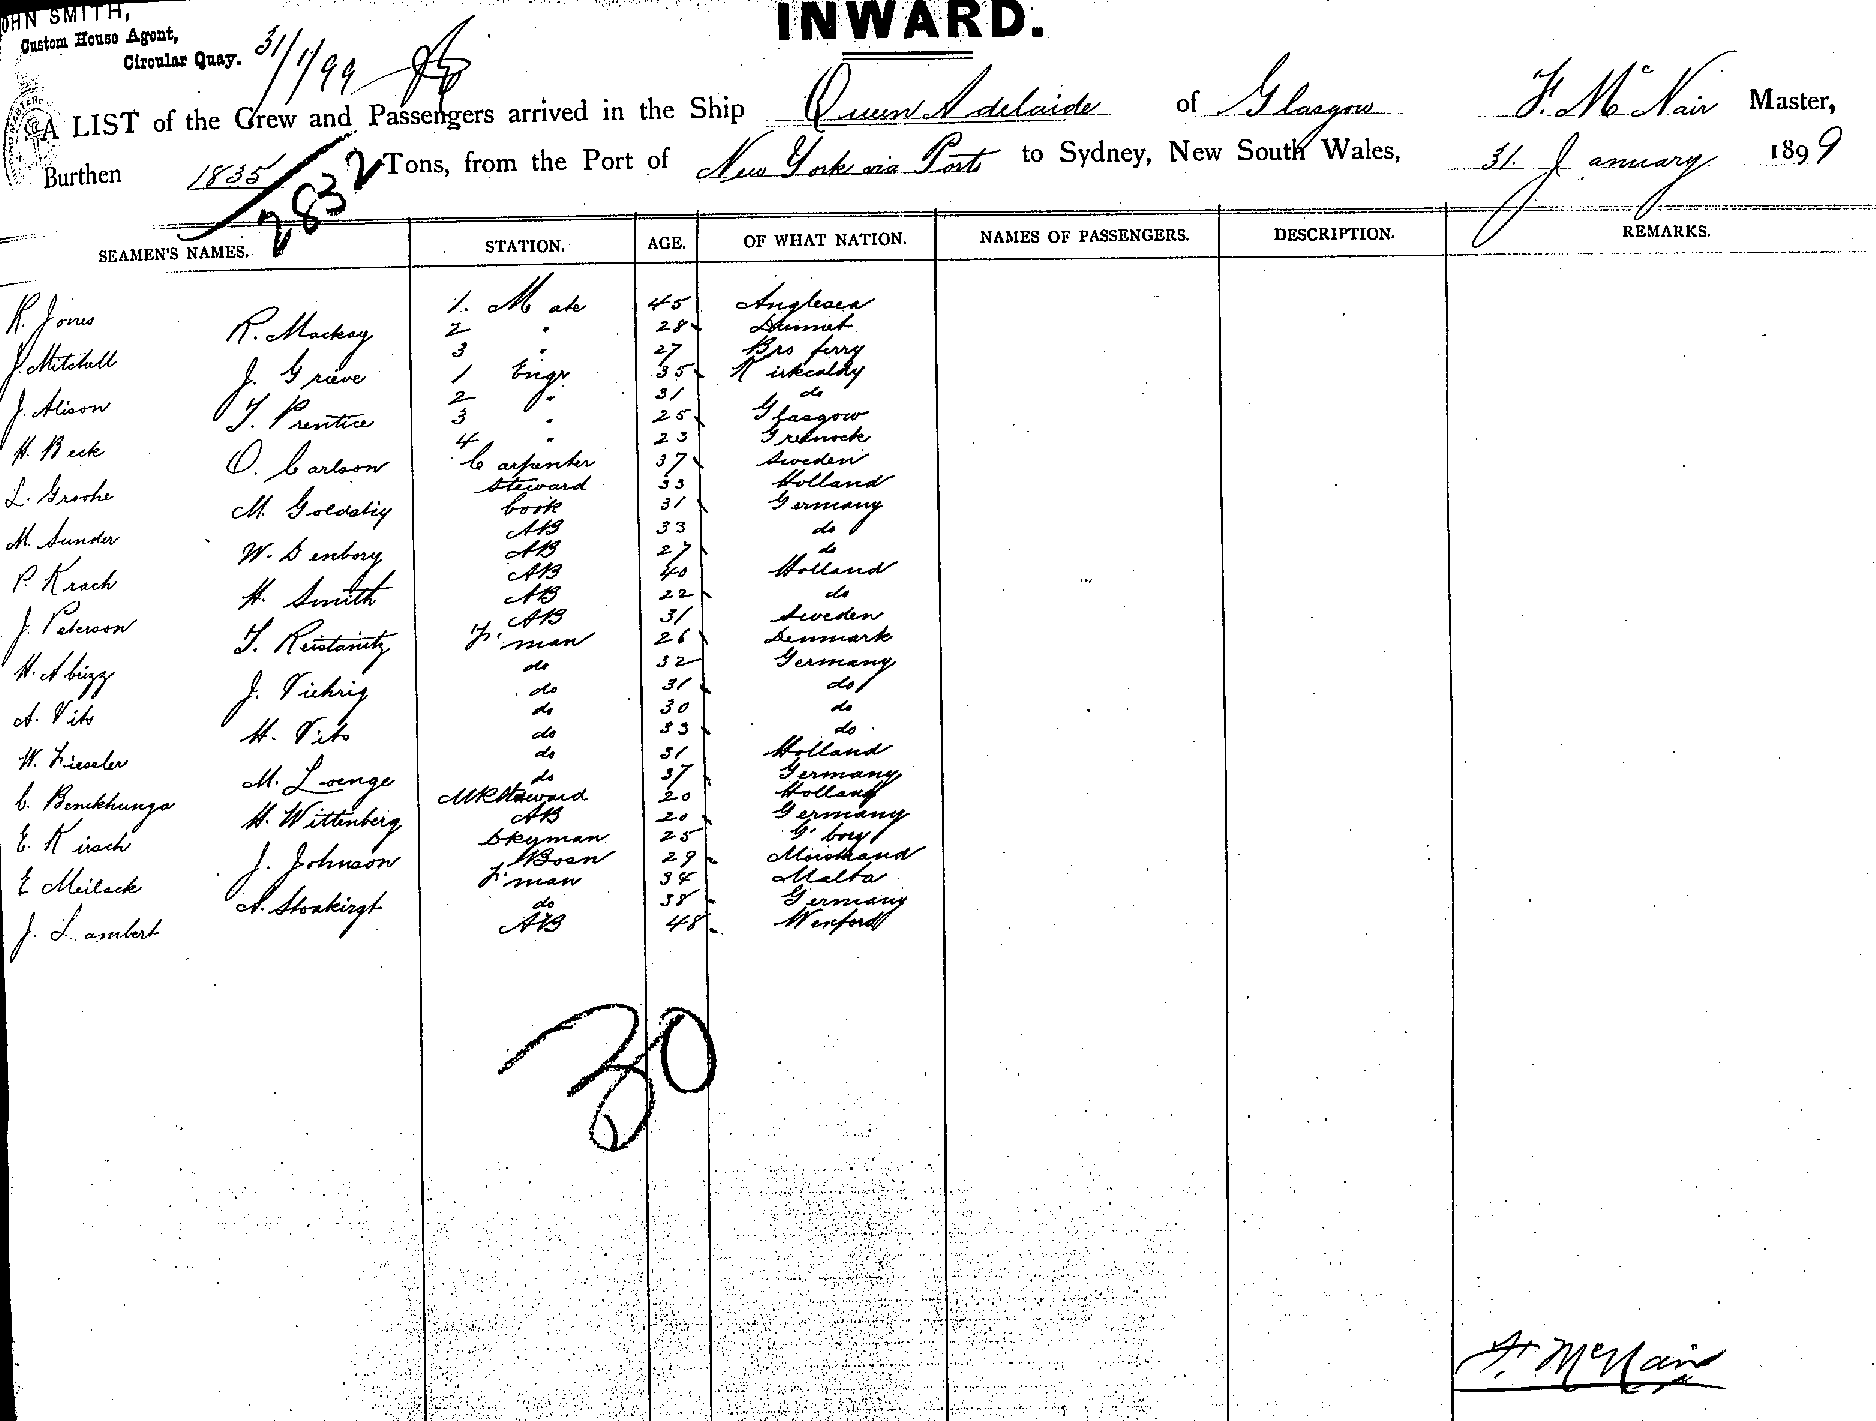 JOHN SMITH,
Custom House Agent,
Circular Quay.
31/1/99
INWARD.
A LIST of the Crew and Passengers arrived in the Ship Queen Adelaide of Glasgow F. McNair Master,
Burthen 1835 / 2832 Tons, from the Port of New York via Ports to Sydney, New South Wales, 31. January 1899
SEAMEN'S NAMES. STATION. AGE. OF WHAT NATION. NAMES OF PASSENGERS. DESCRIPTION. REMARKS.
R. Jones 1. Mate 45 Anglesea
R. Mackay 2 " 28 Dunnet
J. Mitchell 3 " 27 Bro ferry
J. Grieve 1 Engr 35 Kirkcaldy
J. Alison 2 " 31 do
T. Prentice 3 " 25 Glasgow
H. Beck 4 " 23 Greenock
O. Carlson Carpenter 37 Sweden
L. Groohe Steward 33 Holland
M. Goldstiy Cook 31 Germany
M. Sunder AB 33 do
W. Denborg AB 27 do
P. Krach AB 40 Holland
H. Smith AB 22 do
J. Peterson AB 31 Sweden
T. Reistanitz F'man 26 Denmark
H. Abizz do 32 Germany
J. Viehrig do 31 do
A. Vits do 30 do
H. Vits do 33 do
W. Fiessler do 31 Holland
M. Loenge do 37 Germany
C. Benckhunga MRSteward 20 Holland
H. Wittenberg AB 20 Germany
E. Kirsch Dkyman 25 G'borg
J. Johnson Bosn 29 Morstrand
E Meilack F'man 34 Malta
A. Stonkirgt do 38 Germany
J. Lambert AB 48 Wexford
30
F. McNair